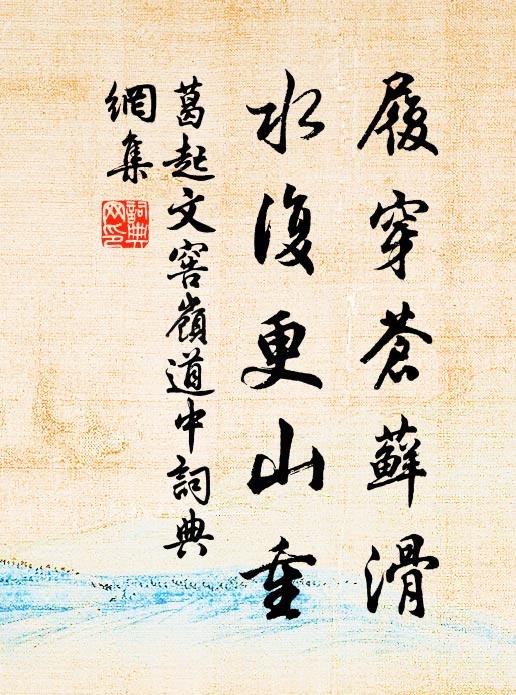 履穿蒼蘚滑
水復更山重
葛起文窖嶺道中詞典
網集
詞典網印